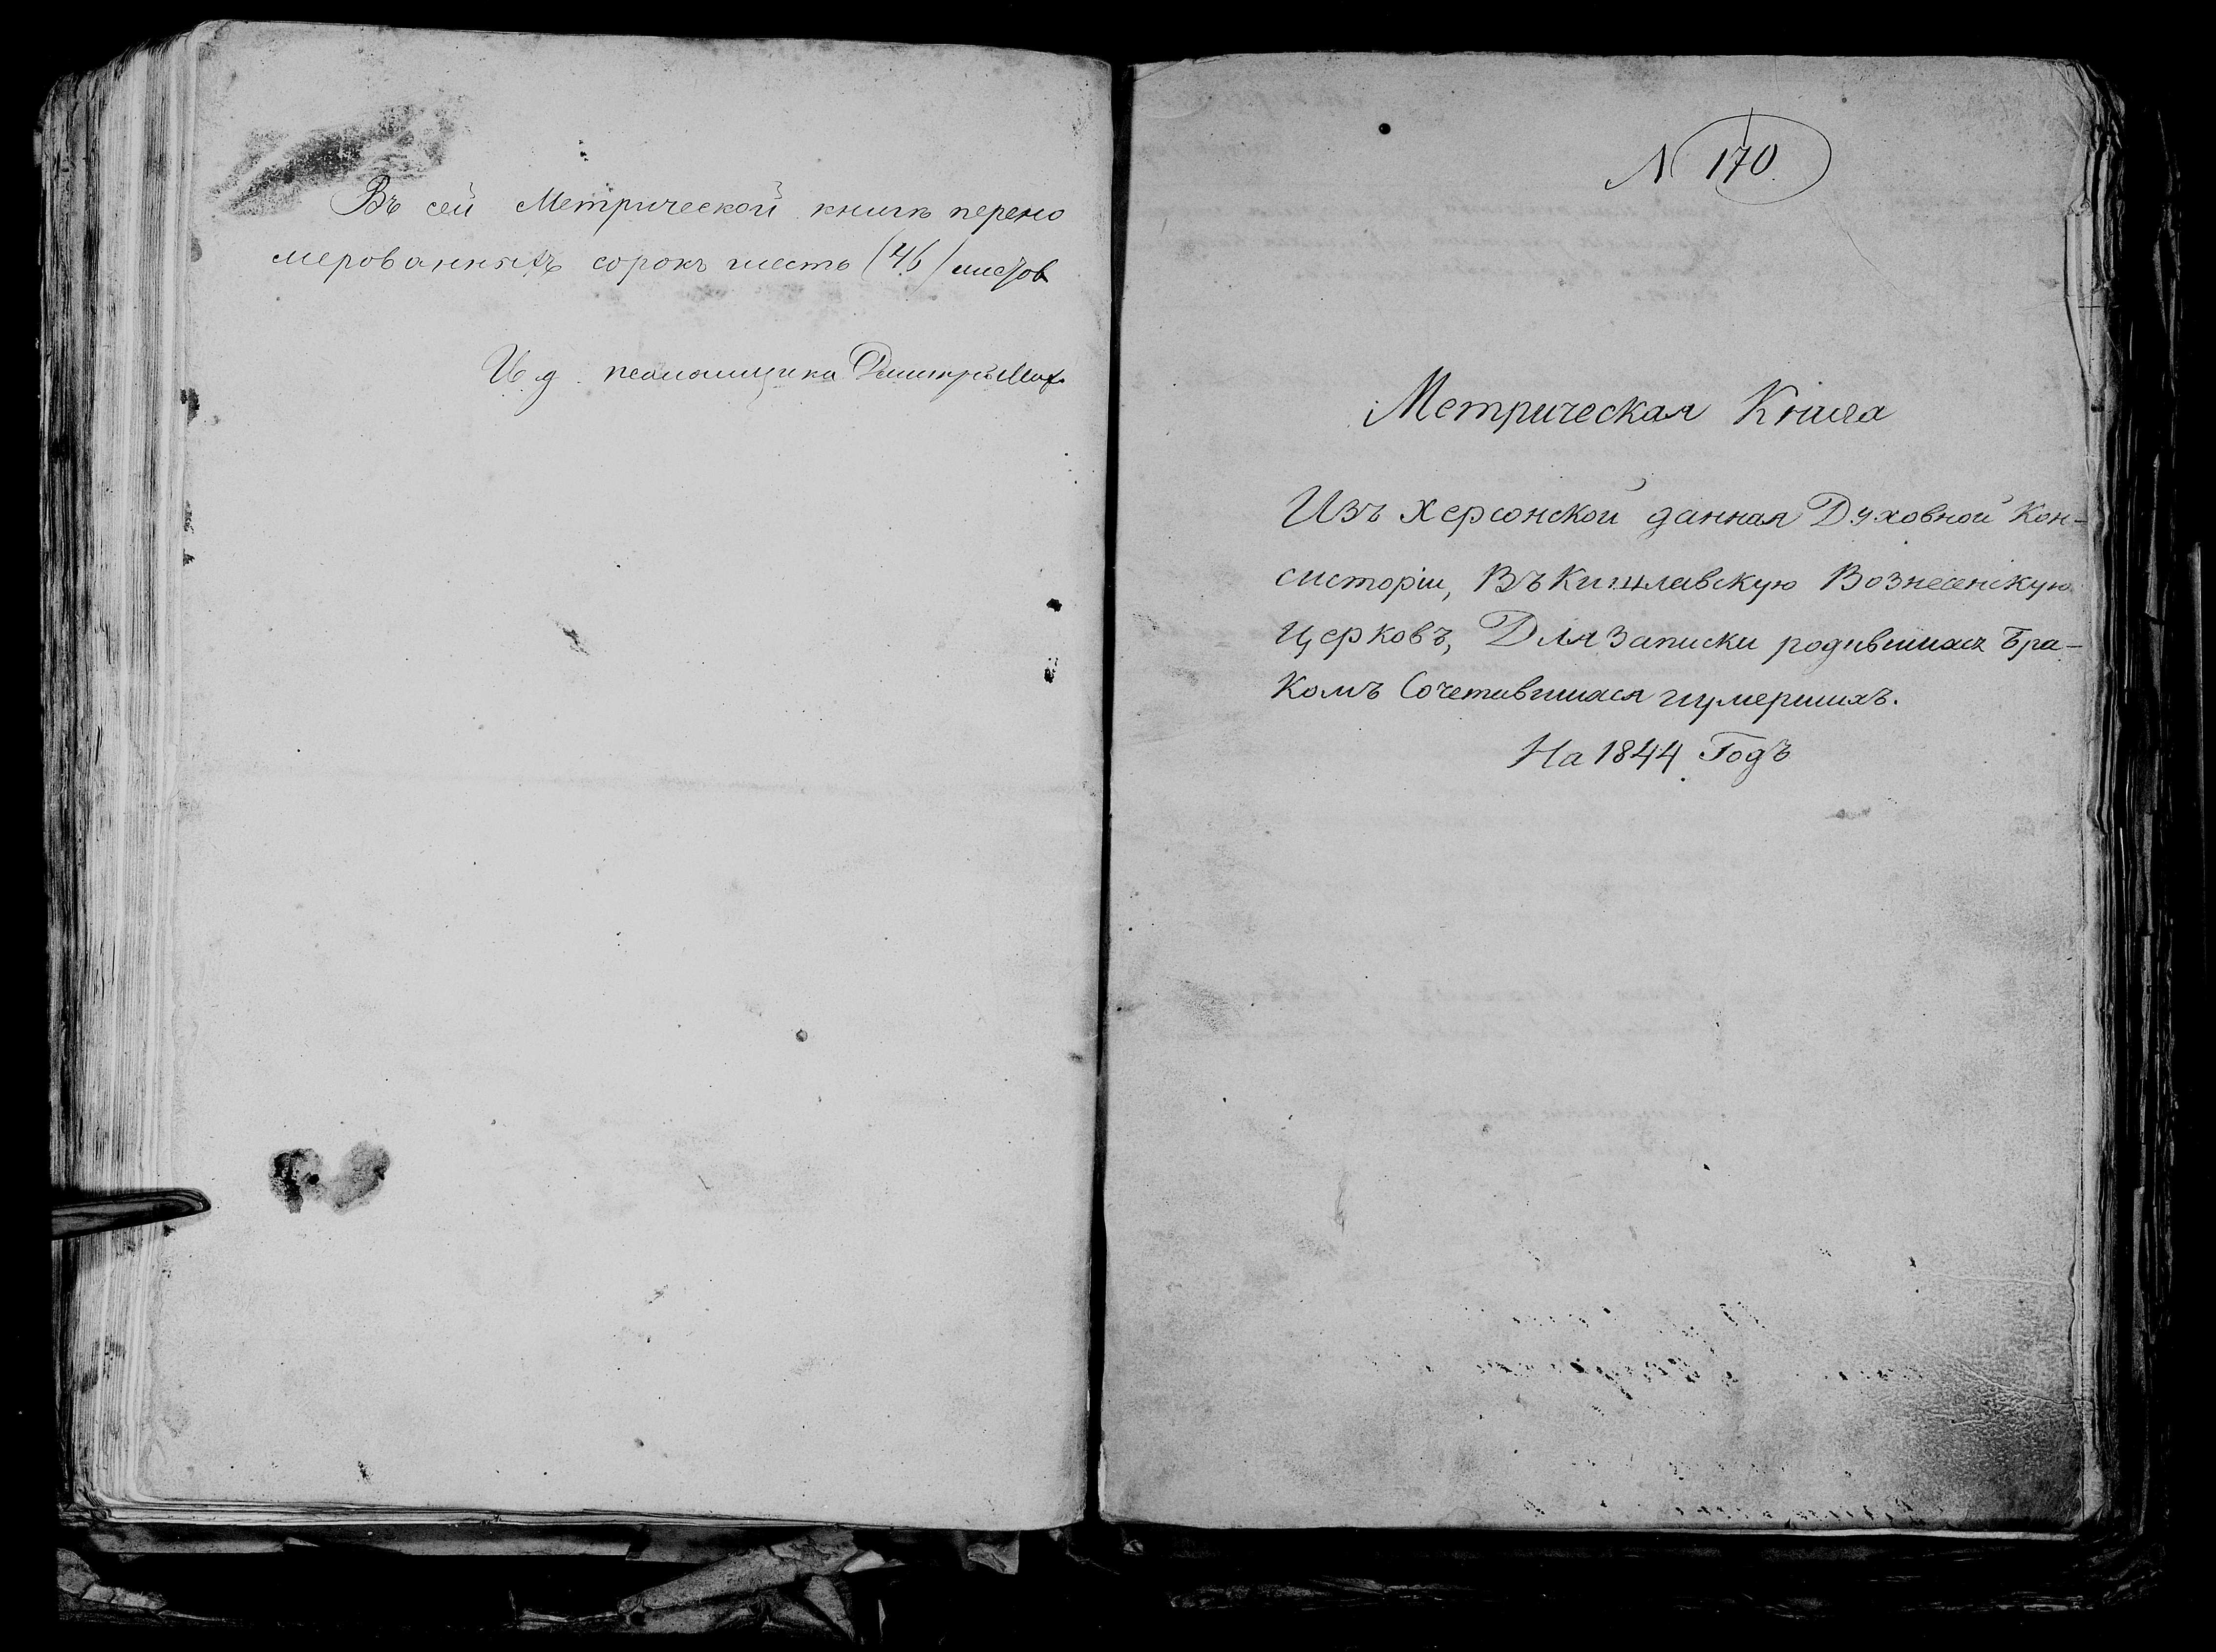 Въ сей Метрической книгѣ перено
мерованныхъ сорокъ шесть (46) листов
И. д. псаломщика Дмитрій
N 170.
Метрическая Книга
Изъ Херсонской данная Духовной Кон-
систоріи, Въ Кишлавскую Вознесенскую
Церковъ, Для Записки родившихся Бра-
комъ Сочетавшихся иумершихъ.
На 1844 Годъ